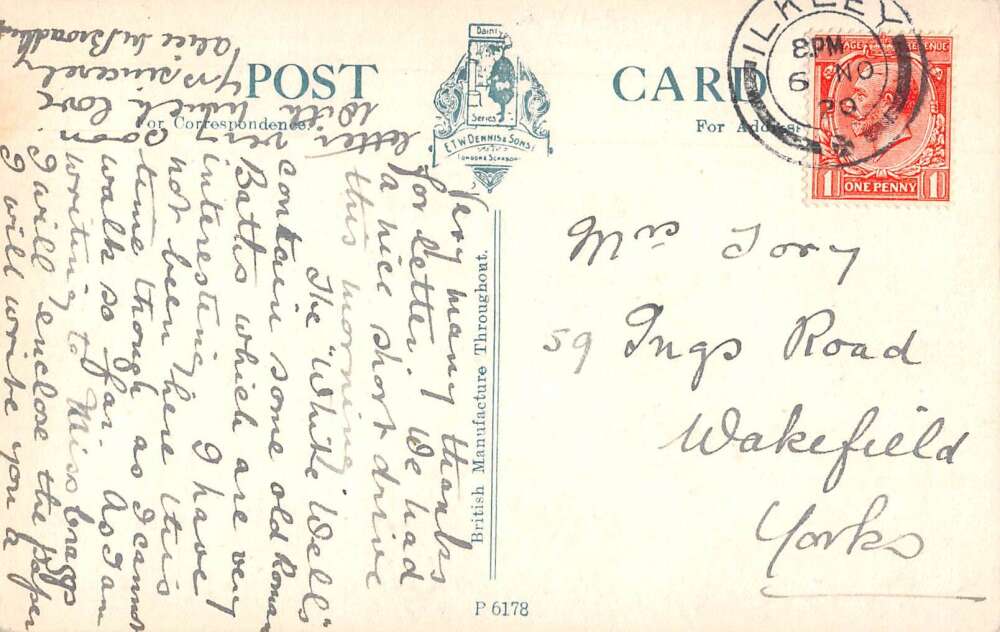 POST CARD
For Correspondence.
For Address
Dainty
Series
E.T.W. DENNIS & SONS LTD
LONDON & SCARBORO
British Manufacture Throughout.
P 6178
ILKLEY
8 PM
6 NO
20
POSTAGE REVENUE
1 ONE PENNY 1
Mrs Tory
59 Ings Road
Wakefield
Yorks
Very many thanks
for letter. We had
a nice short drive
this morning.
The "White Wells"
contain some old Roman
Baths which are very
interesting I have
not been here this
time though as I cannot
walk so far. As I am
writing to Miss Craggs
I will enclose the paper
I will write you a
letter very soon.
With much love
Yrs sincerely
Alice M